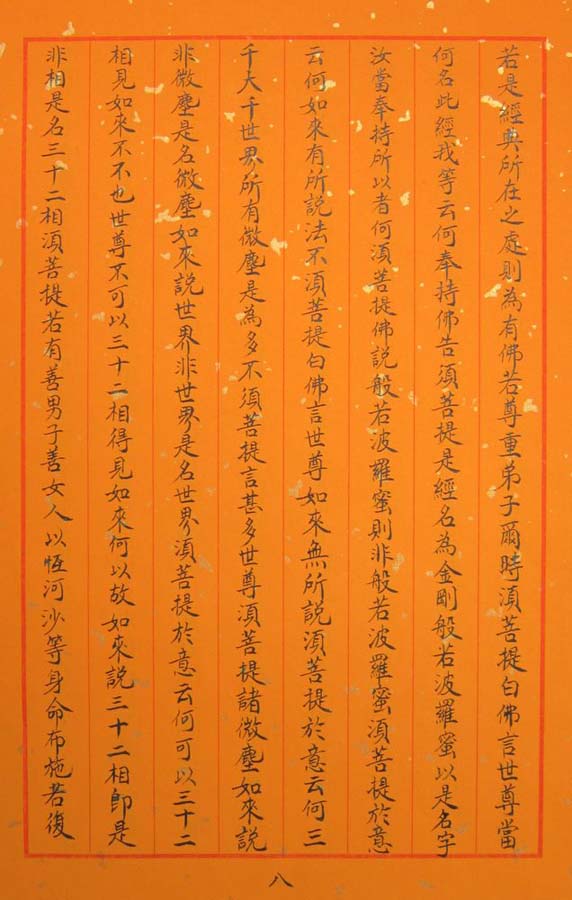 若是經典所在之處則為有佛若尊重弟子爾時湏菩提白佛言世尊當
何名此經我等云何奉持佛告須菩提是經名為金剛般若波羅蜜以是名字
汝當奉持所以者何湏菩提佛說般若波羅蜜則非般若波羅蜜湏菩提於意
云何如來有所說法不湏菩提白佛言世尊如來無所說湏菩提於意云何三
千大千世界所有微塵是為多不須菩提言甚多世尊湏菩提諸微塵如來說
非微塵是名微塵如來說世界非世界是名世界湏菩提於意云何可以三十二
相見如來不不也世尊不可以三十二相得見如來何以故如來説三十二相即是
非相是名三十二相湏菩提若有善男子善女人以恆河沙等身命布施若復
八